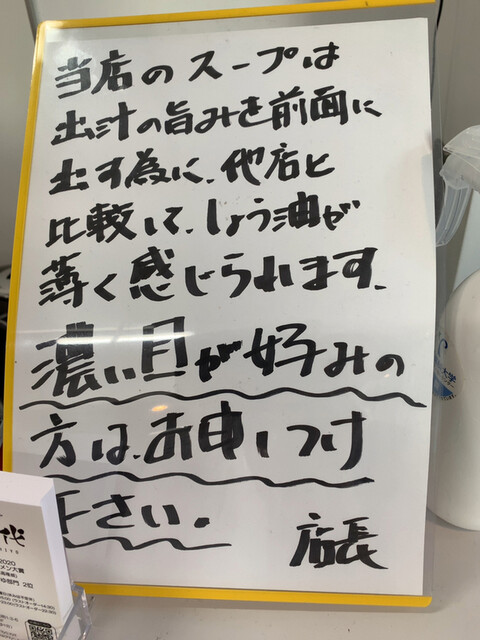 当店のスープは
出汁の旨みを前面に
出す為に、他店と
比較して、しょう油が
薄く感じられます。
濃い目が好みの
方は、お申しつけ
下さい。
店長
代
2020
メン大賞
ゆ部門 2位
大学